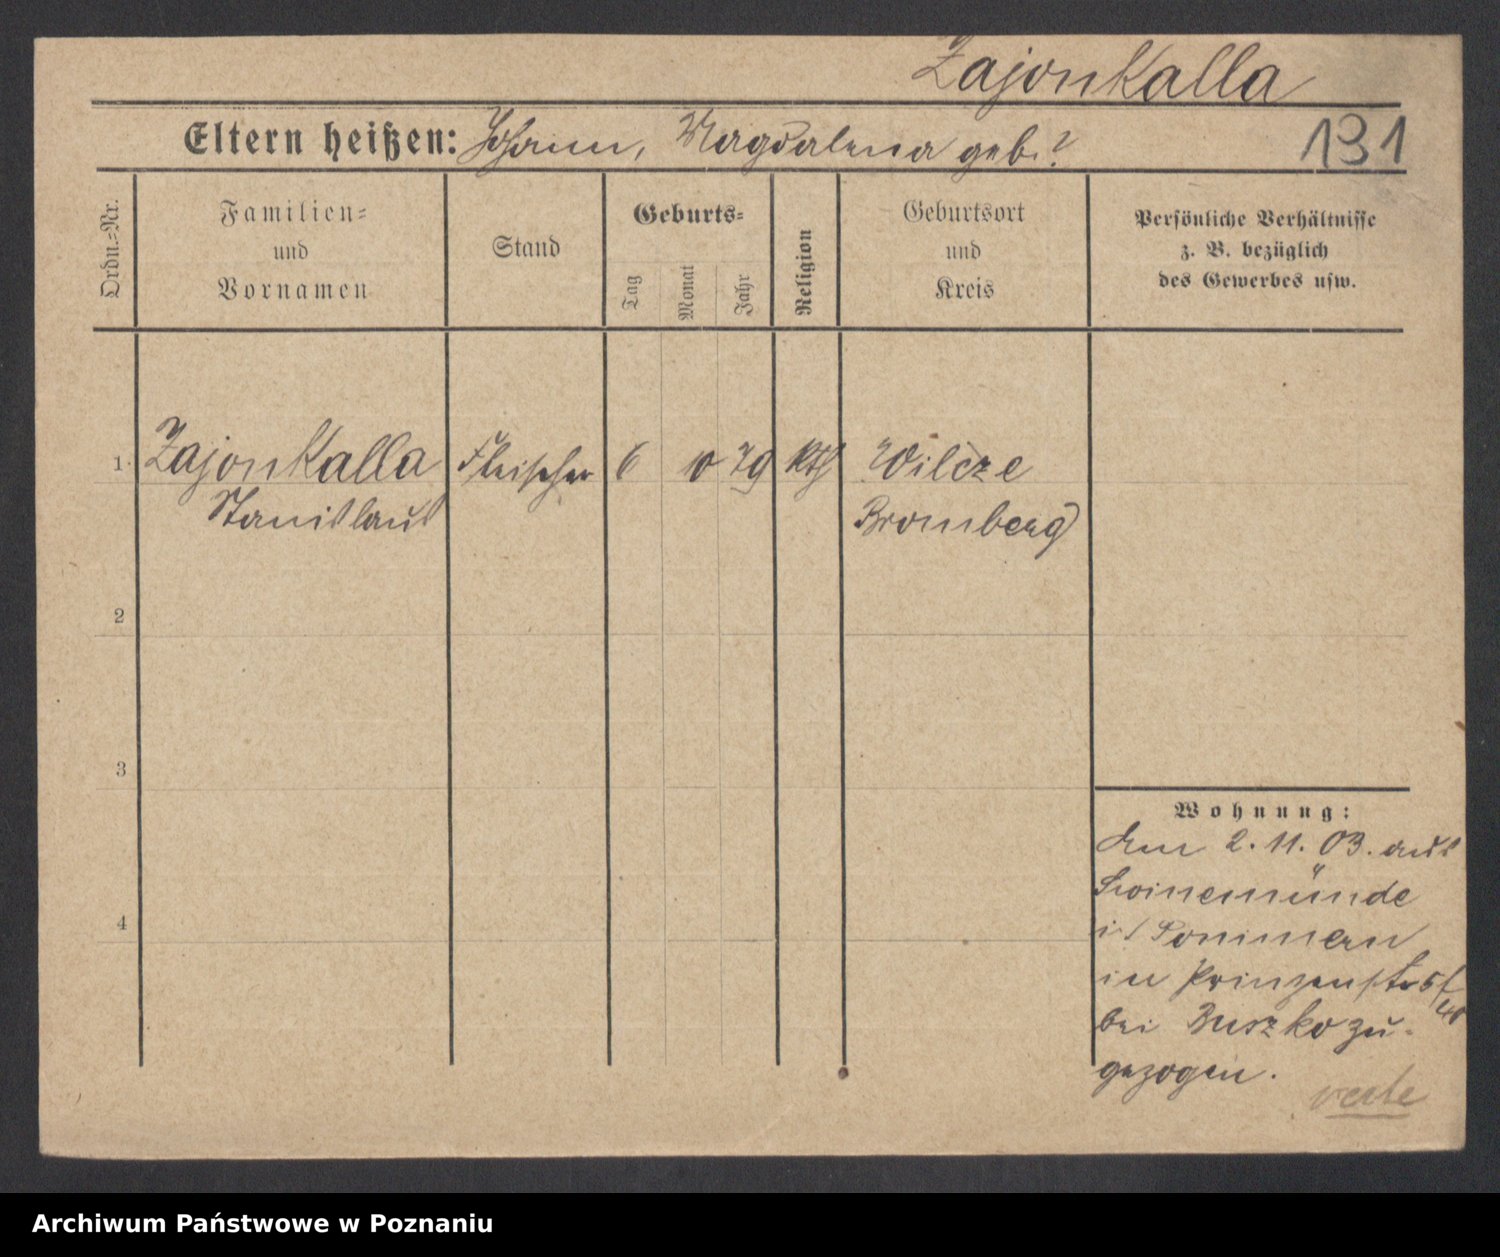 Zajonkalla
Eltern heißen: Johann, Magdalena geb. ?
131
Ordn.-Nr.
Familien-
und
Vornamen
Stand
Geburts-
Tag
Monat
Jahr
Religion
Geburtsort
und
Kreis
Persönliche Verhältnisse
z. B. bezüglich
des Gewerbes usw.
1. Zajonkalla Fleischer 6 10 79 kth Wilcze
Stanislaus Bromberg
2
3
4
Wohnung:
Am 2. 11. 03. aus
Swinemünde
i/ Pommern
in Prinzenstr
bei Buszko zu-
gezogen.
verte
Archiwum Państwowe w Poznaniu